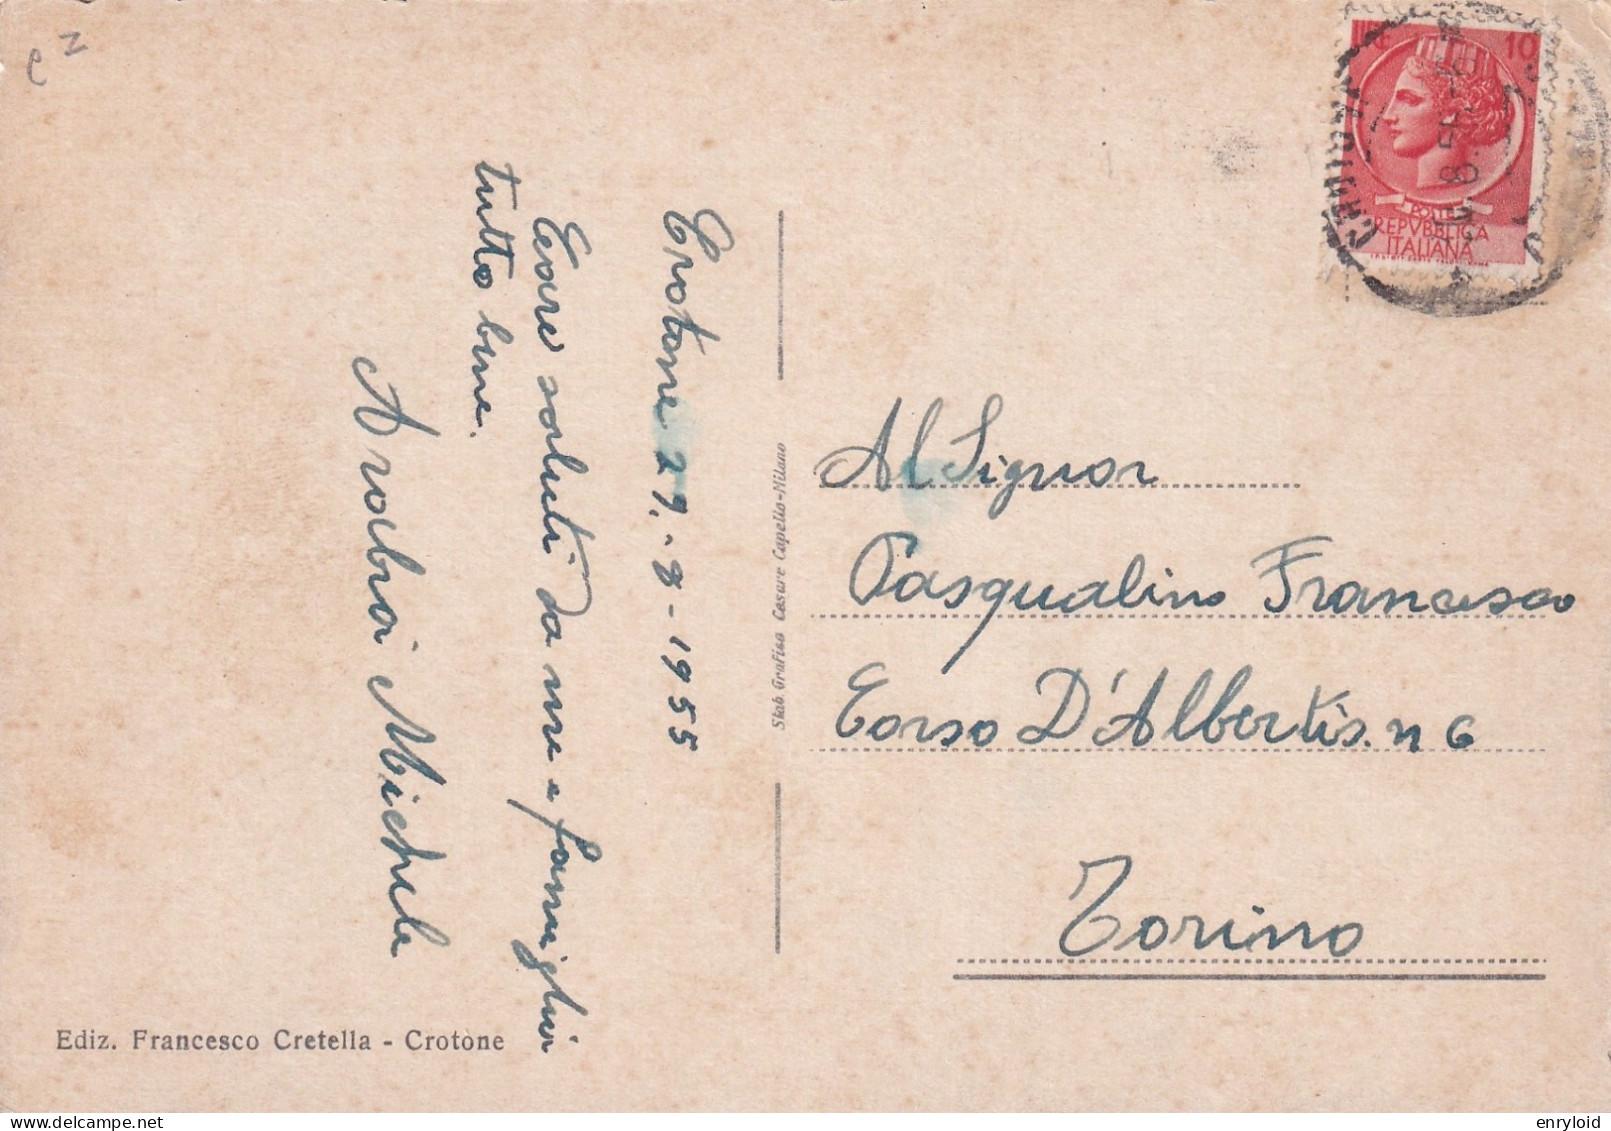 Crotone 29.-8-1955
Care saluti da me e famiglia
tutto bene.
Arabia Michele
Stab. Grafico Cesare Capello-Milano
Ediz. Francesco Cretella - Crotone
LIRE 10
POSTE
REPVBBLICA
ITALIANA
Al Signor
Pasqualino Francesco
Corso D'Albertis. n 6
Torino
enryloid